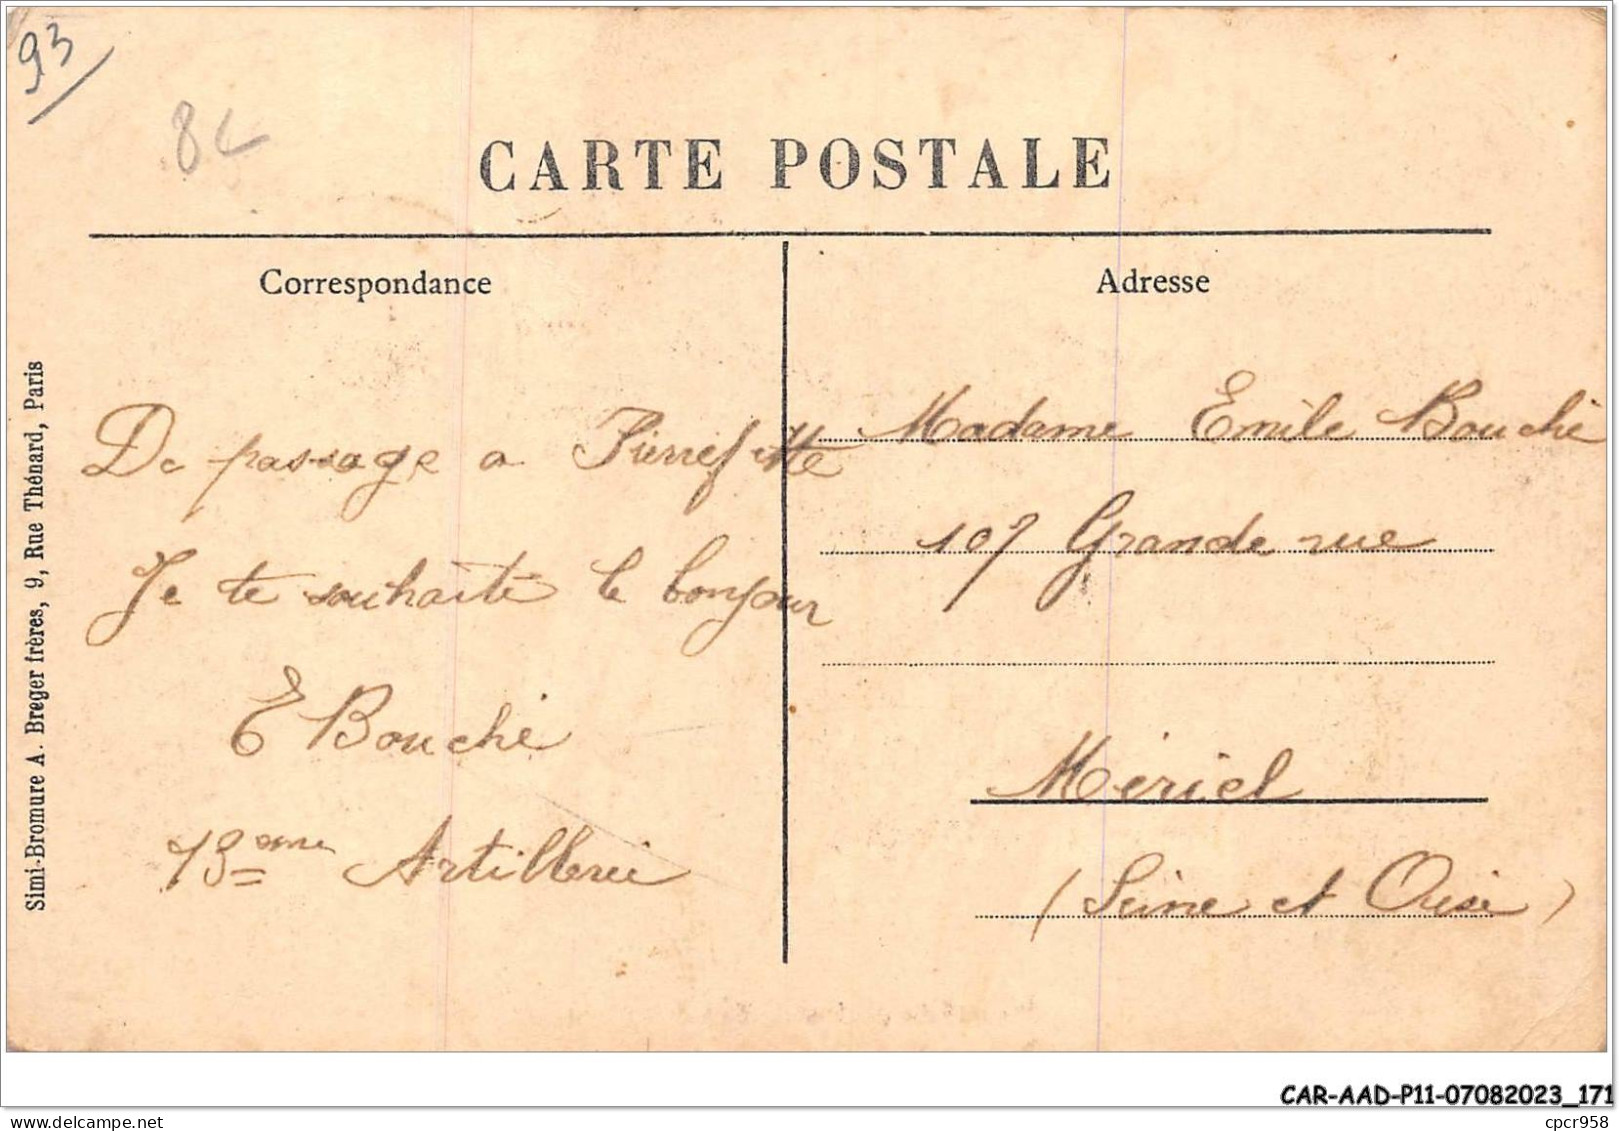 93
8
CARTE POSTALE
Correspondance
Adresse
De passage a Pierrefitte
Je te souhaite le bonjour
E Bouché
13eme Artillerie
Madame Emile Bouché
107 Grande rue
Mériel
(Seine et Oise)
Simi-Bromure A. Breger frères, 9, Rue Thénard, Paris
CAR-AAD-P11-07082023_171
cpcr958